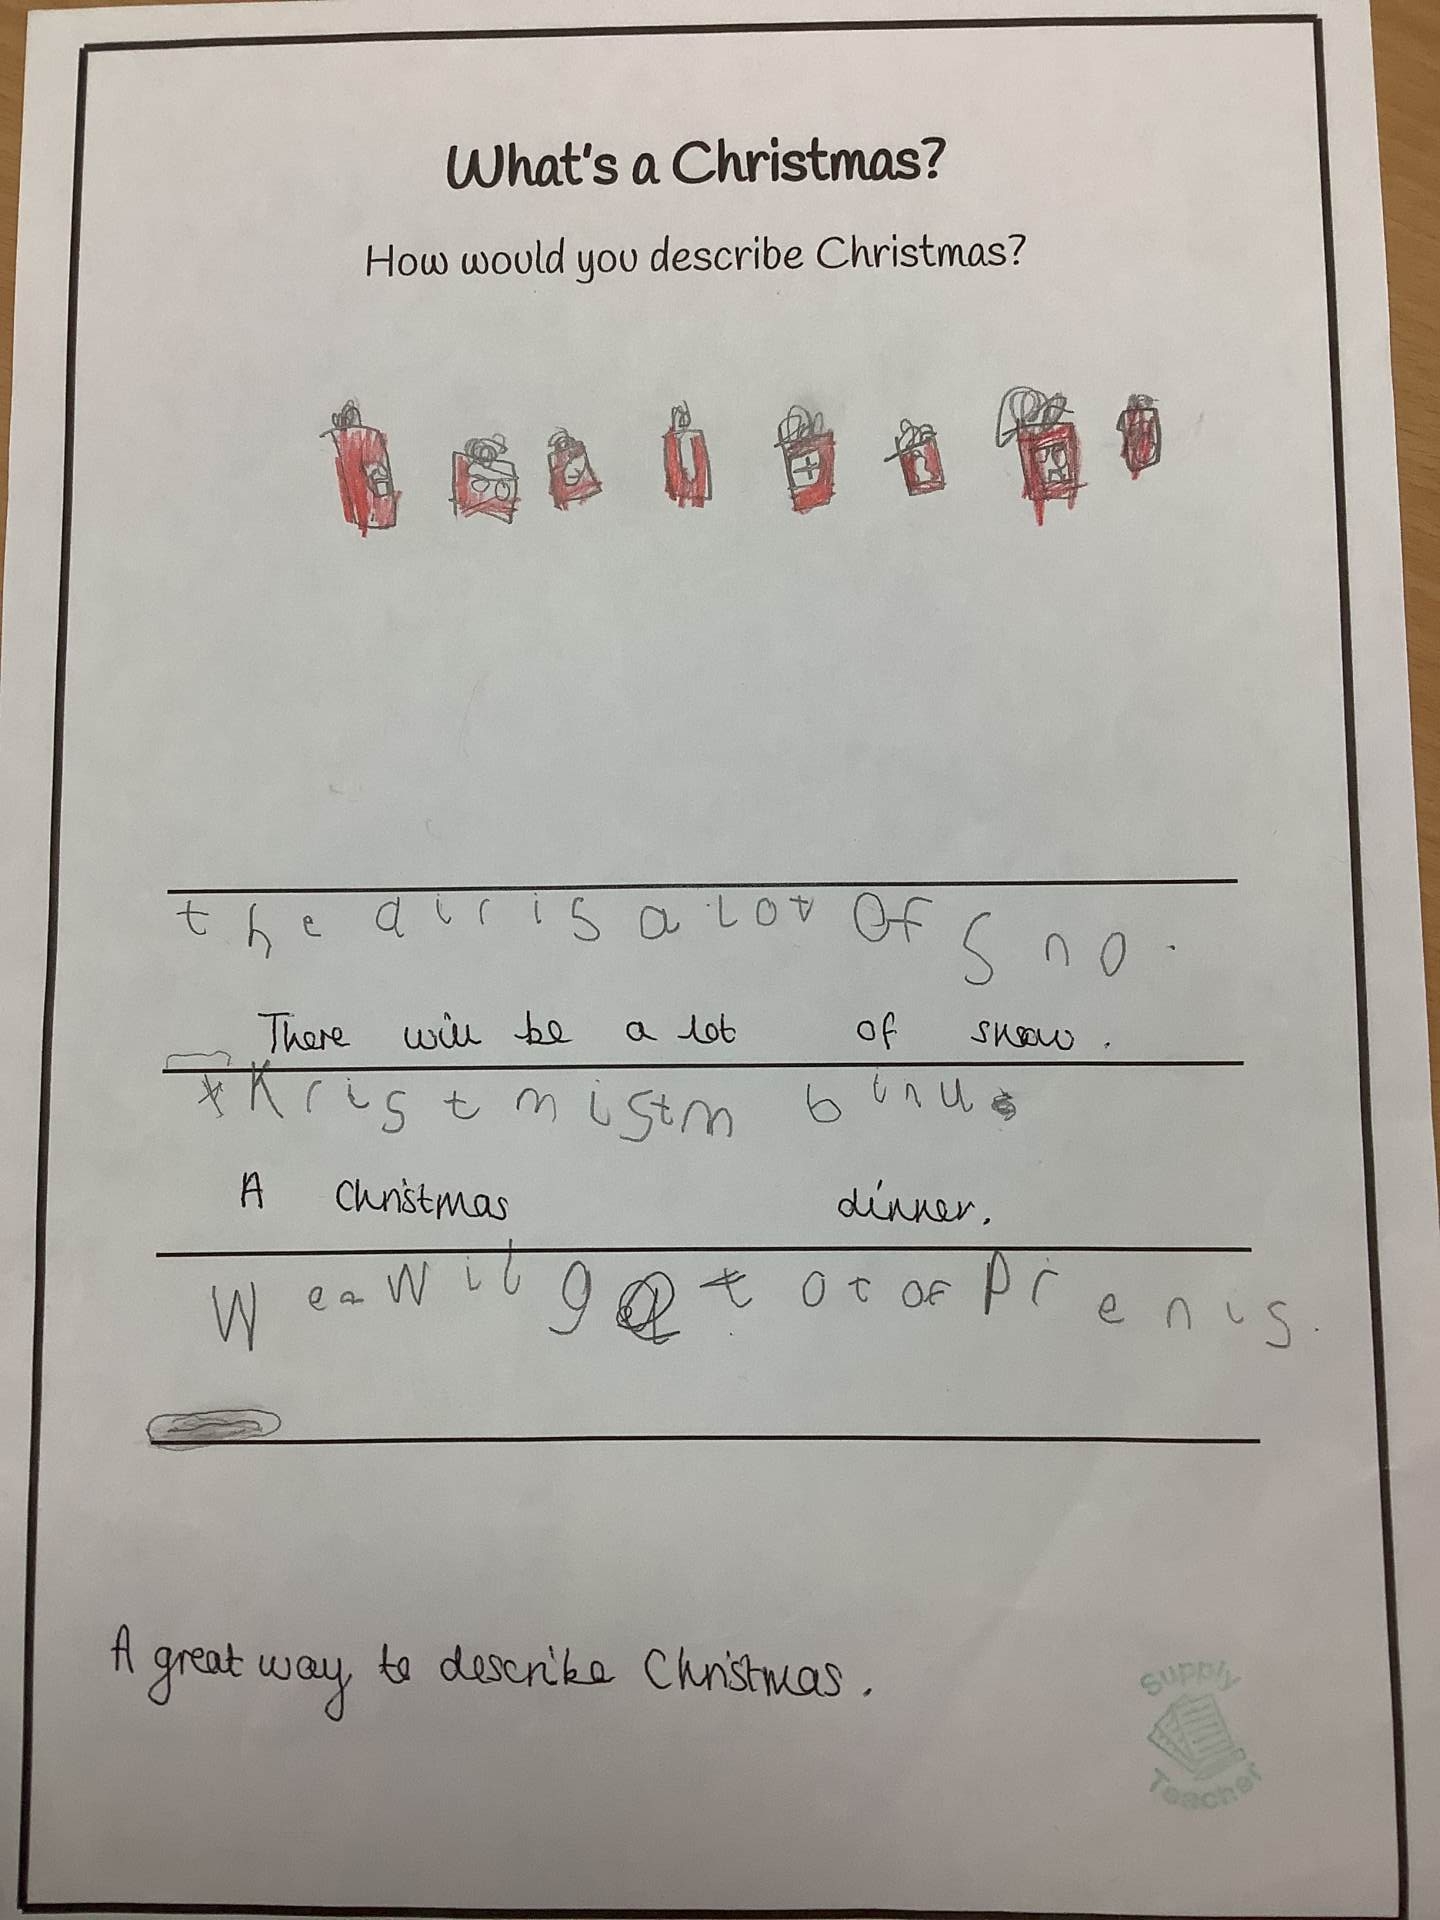 What's a Christmas?
How would you describe Christmas?
the dir is a lot Of Sno.
There will be a lot of snow.
Kristmistm binu
A Christmas dinner.
Wea wil get ot of Prenis.
A great way to describe Christmas.
Supply
Teacher